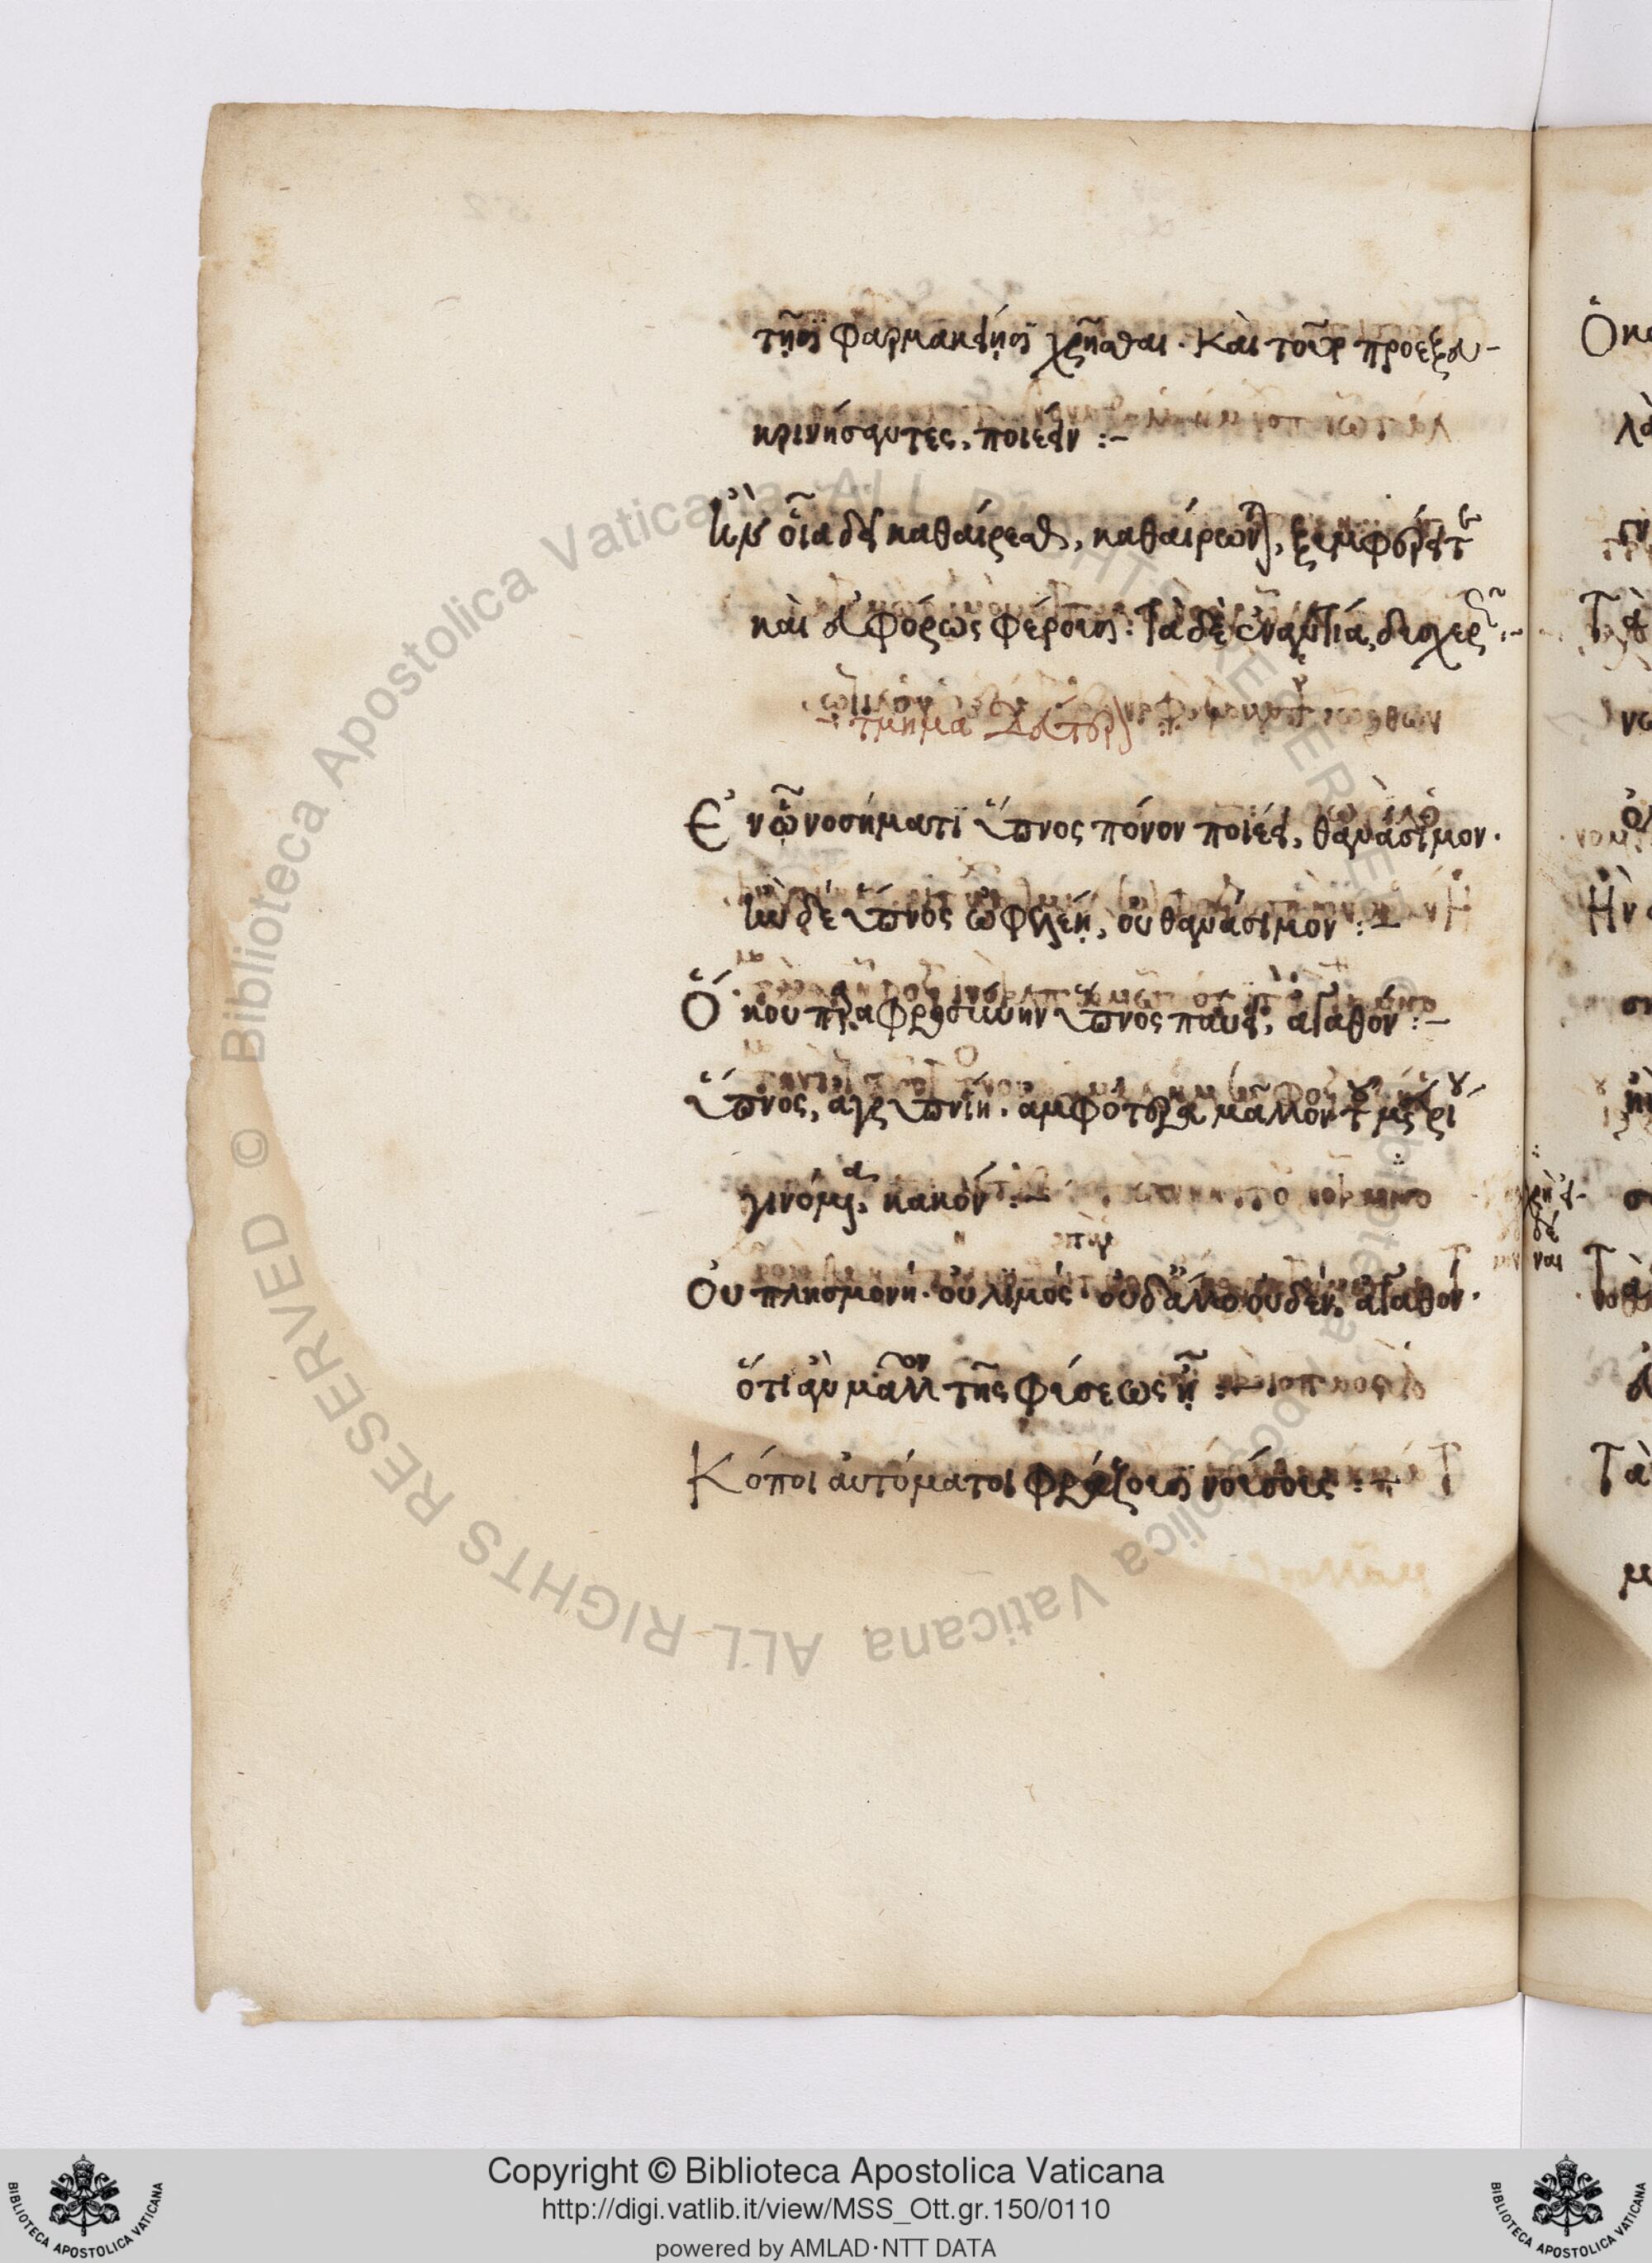 τῆισι φαρμακείηισι χρῆσθαι. Καὶ τοῦτο προεξευ-
κρινήσαντες, ποιέειν :-
Ἢν οἷα δεῖ καθαίρεσθαι, καθαίρωνται, ξυμφέρει τε
καὶ εὐφόρως φέρουσι: Τὰ δὲ ἐναντία, δυσχερῶς :-
τμῆμα δεύτερον
Ἐν ὧι νοσήματι ὕπνος πόνον ποιέει, θανάσιμον.
ἢν δὲ ὕπνος ὠφελέηι, οὐ θανάσιμον :-
Ὅκου παραφροσύνην ὕπνος παύει, ἀγαθόν :-
Ὕπνος, ἀγρυπνίη. ἀμφότερα μᾶλλον τοῦ μετρίου
γινόμενα, κακόν :-
Οὐ πλησμονή. οὐ λιμός. οὐδ' ἄλλο οὐδέν, ἀγαθόν.
ὅτι ἂν μᾶλλον τῆς φύσεως ἦι :-
Κόποι αὐτόματοι φράζουσι νούσους :-
Copyright © Biblioteca Apostolica Vaticana
http://digi.vatlib.it/view/MSS_Ott.gr.150/0110
powered by AMLAD·NTT DATA
BIBLIOTECA APOSTOLICA VATICANA
BIBLIOTECA APOSTOLICA VATICANA
© Biblioteca Apostolica Vaticana ALL RIGHTS RESERVED
© Biblioteca Apostolica Vaticana ALL RIGHTS RESERVED